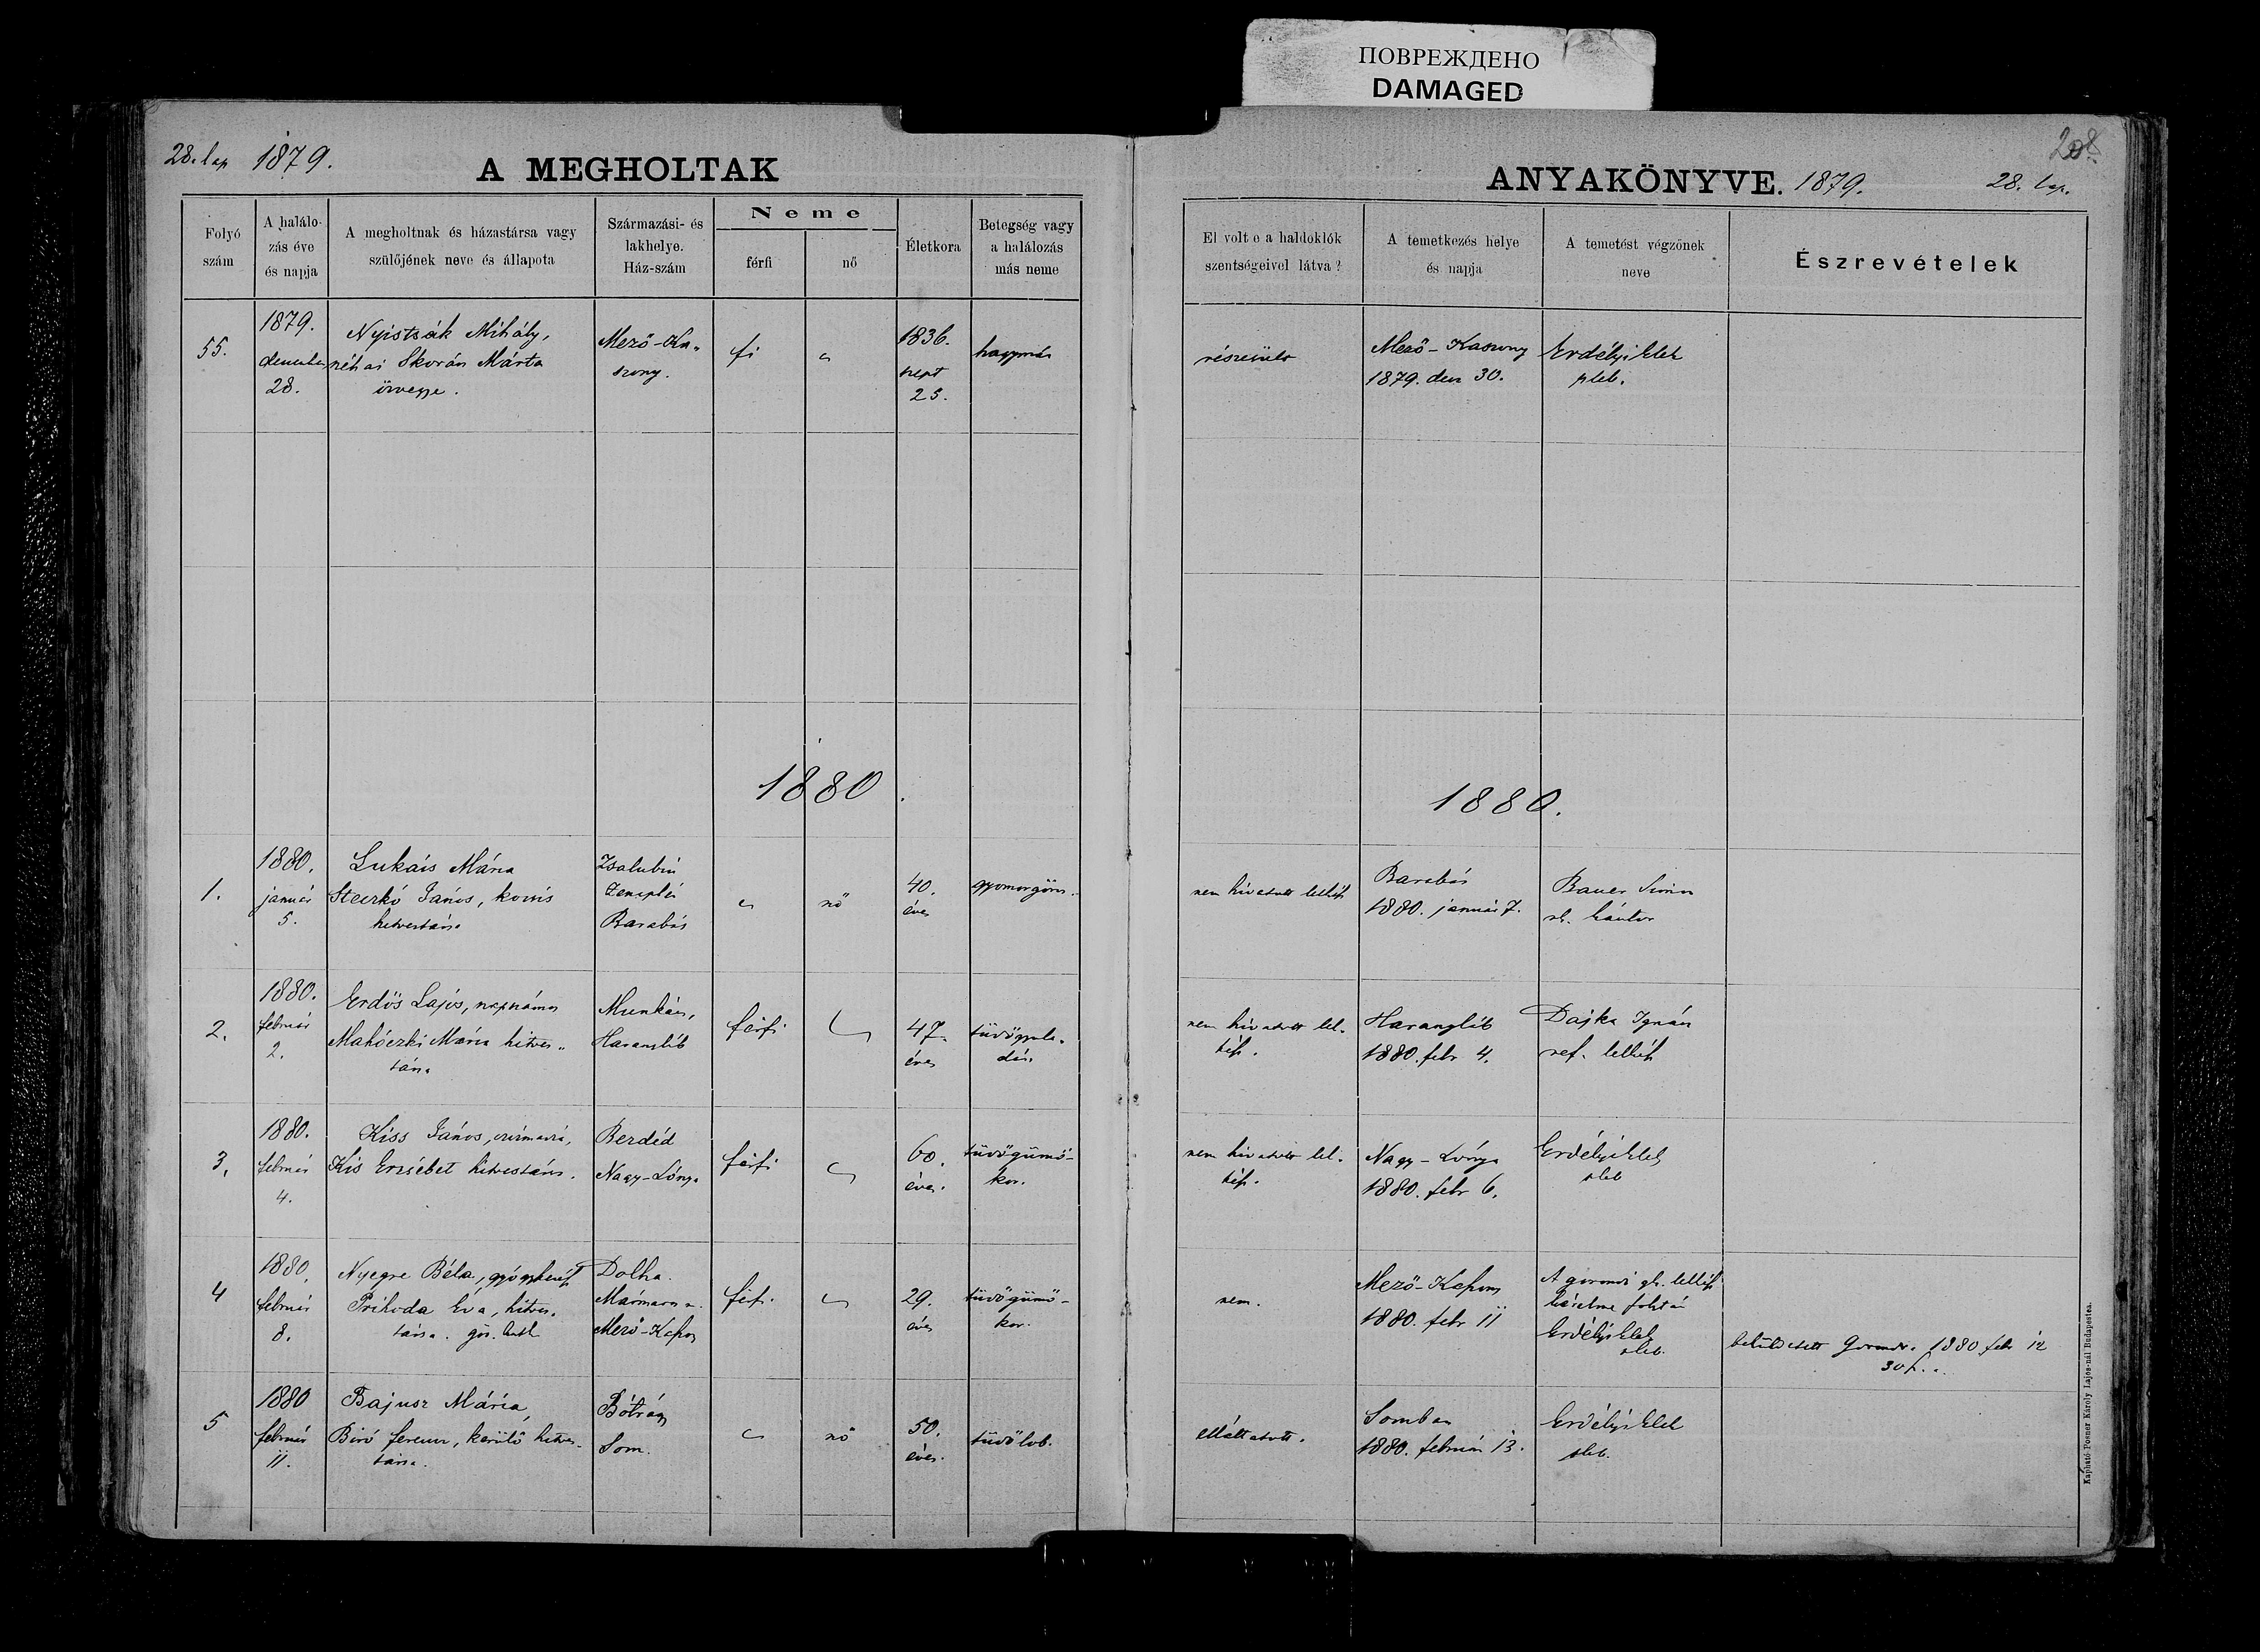 ПОВРЕЖДЕНО
DAMAGED
28. lap 1879.
A MEGHOLTAK
ANYAKÖNYVE. 1879.
28. lap.
208
Folyó szám
A halálo-
zás éve
és napja
A megholtnak és házastársa vagy
szülőjének neve és állapota
Származási- és
lakhelye.
Ház-szám
Neme
férfi
nő
Életkora
Betegség vagy
a halálozás
más neme
El volt e a haldoklók
szentségeivel látva?
A temetkezés helye
és napja
A temetést végzőnek
neve
Észrevételek
55.
1879.
december
28.
Nyistsák Mihály,
néhai Skorán Márta
özvegye.
Mező-Ka-
szony.
fi
1836.
sept
25.
hagymáz
részesült
Mező-Kaszony
1879. dec 30.
Erdélyi Elek
pleb.
1880.
1880.
1.
1880.
január
5.
Lukáis Mária
Steczkó János, kovás
hitvestársa
Zsalubin
Zemplén
Barabás
nő
40.
éves
gyomorgörcs.
nem hivatott lelkész
Barabás
1880. január 7.
Bauer Simon
kántor
2.
1880.
február
2.
Erdős Lajos, napszámos
Makóczki Mária hitves-
társa
Munkács,
Harangláb
férfi
47.
éves
nem hivatott lel-
kész.
Harangláb
1880. febr 4.
Dajka Ignácz
ref. lelkész
3.
1880.
február
4.
Kiss János, csizmadia,
Kis Erzsébet hitvestársa.
Berdéd
Nagy-Lónya
férfi
60.
éves.
tüdőgümő-
kor.
nem hivatott lel-
kész.
Nagy-Lónya
1880. febr 6.
Erdélyi Elek
pleb
4
1880.
február
8.
Nyegre Béla, gyógyszerész
Prihoda Éva, hitves-
társa. gör. kath
Dolha.
Mármaros m.
Mező-Kaszony
férfi.
29.
éves
tüdőgümő-
kor.
nem.
Mező-Kaszony
1880. febr 11
A gorondi gk. lelkész
kérelme folytán
Erdélyi Elek
pleb.
1880 feb 12
5
1880
február
11.
Bajusz Mária,
Biró ferencz, kerülő hitves-
társa.
Bótrágy
Som.
nő
50.
éves.
tüdőlob.
elláttatott.
Somban
1880. február 13.
Erdélyi Elek
pleb.
Kapható Posner Károly Lajos-nál Budapesten.